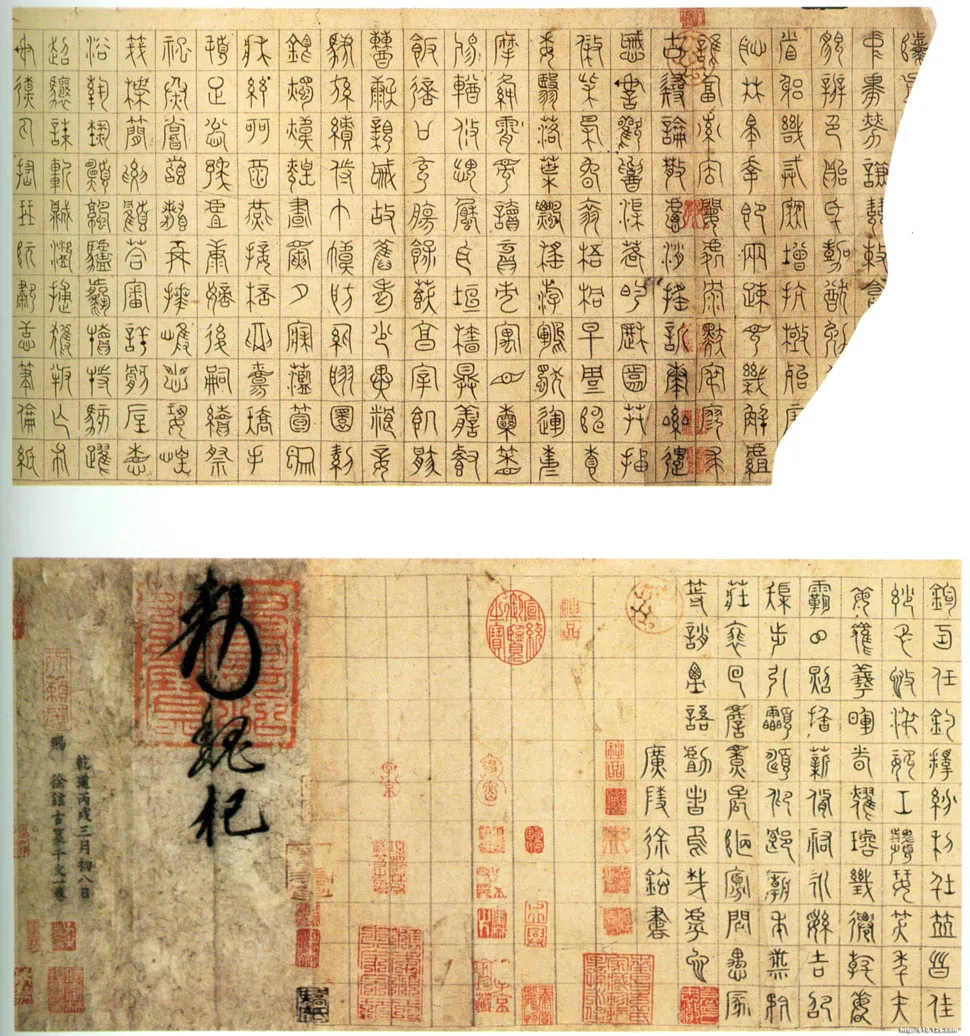 陟孟
中庸勞謙謹敕聆
貌辨色貽厥嘉猷勉
省躬譏誡寵增抗極殆辱
恥林皋幸即兩疏見機解組
誰逼索居閑處沉默寂寥求
古尋論散慮逍遙欣奏累遣
慼謝歡招渠荷的歷園莽抽
條枇杷晚翠梧桐早凋陳根
委翳落葉飄搖遊鵾獨運凌
摩絳霄耽讀翫市寓目囊箱
易輶攸畏屬耳垣牆具膳餐
飯適口充腸飽飫烹宰飢厭
糟糠親戚故舊老少異糧妾
御績紡侍巾帷房紈扇圓潔
銀燭煒煌晝眠夕寐藍筍象
牀弦歌酒讌接杯舉觴矯手
頓足悅豫且康嫡後嗣續祭
祀烝嘗稽顙再拜悚懼恐惶
牋牒簡要顧答審詳骸垢想
浴執熱願涼驢騾犢特駭躍
超驤誅斬賊盜捕獲叛亡布
射遼丸嵇琴阮嘯恬筆倫紙
鈞巧任釣釋紛利俗並皆佳
妙毛施淑姿工顰妍笑年矢
每催羲暉朗曜璇璣懸斡晦
魄環照指薪修祜永綏吉劭
矩步引領俯仰廊廟束帶矜
莊徘徊瞻眺孤陋寡聞愚蒙
等誚謂語助者焉哉乎也
廣陵徐鉉書
勅魏杞
乾道丙戌三月初八日
賜 徐鉉古篆千文一卷